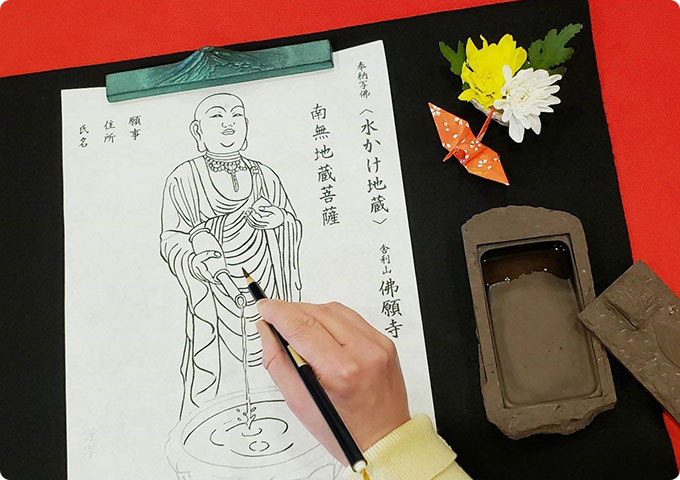 奉納写佛
〈水かけ地蔵〉
舎利山 佛願寺
南無地蔵菩薩
願事
住所
氏名